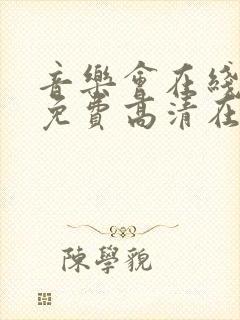 音樂會在綫
免費高清在
陳學貌